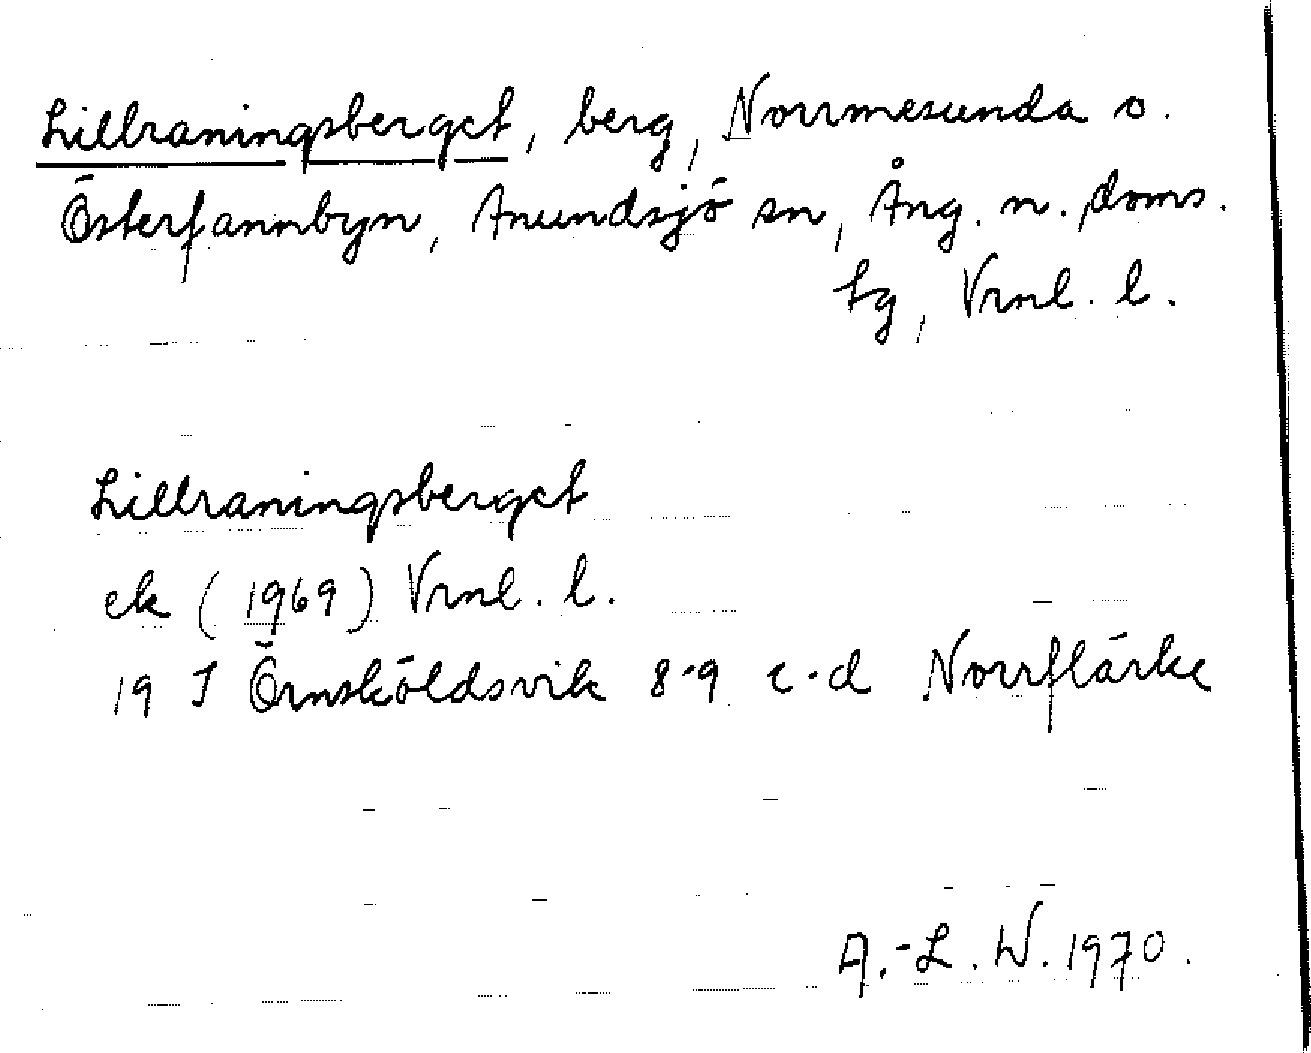 Lillraningsberget, berg, Norrmesunda o.
Österfannbyn, Anundsjö sn, Ång. n. doms.
tg, Vrnl. l.
Lillraningsberget
ek (1969) Vrnl. l.
19 J Örnsköldsvik 8-9 c-d Norrflärke
A.-L. W. 1970.